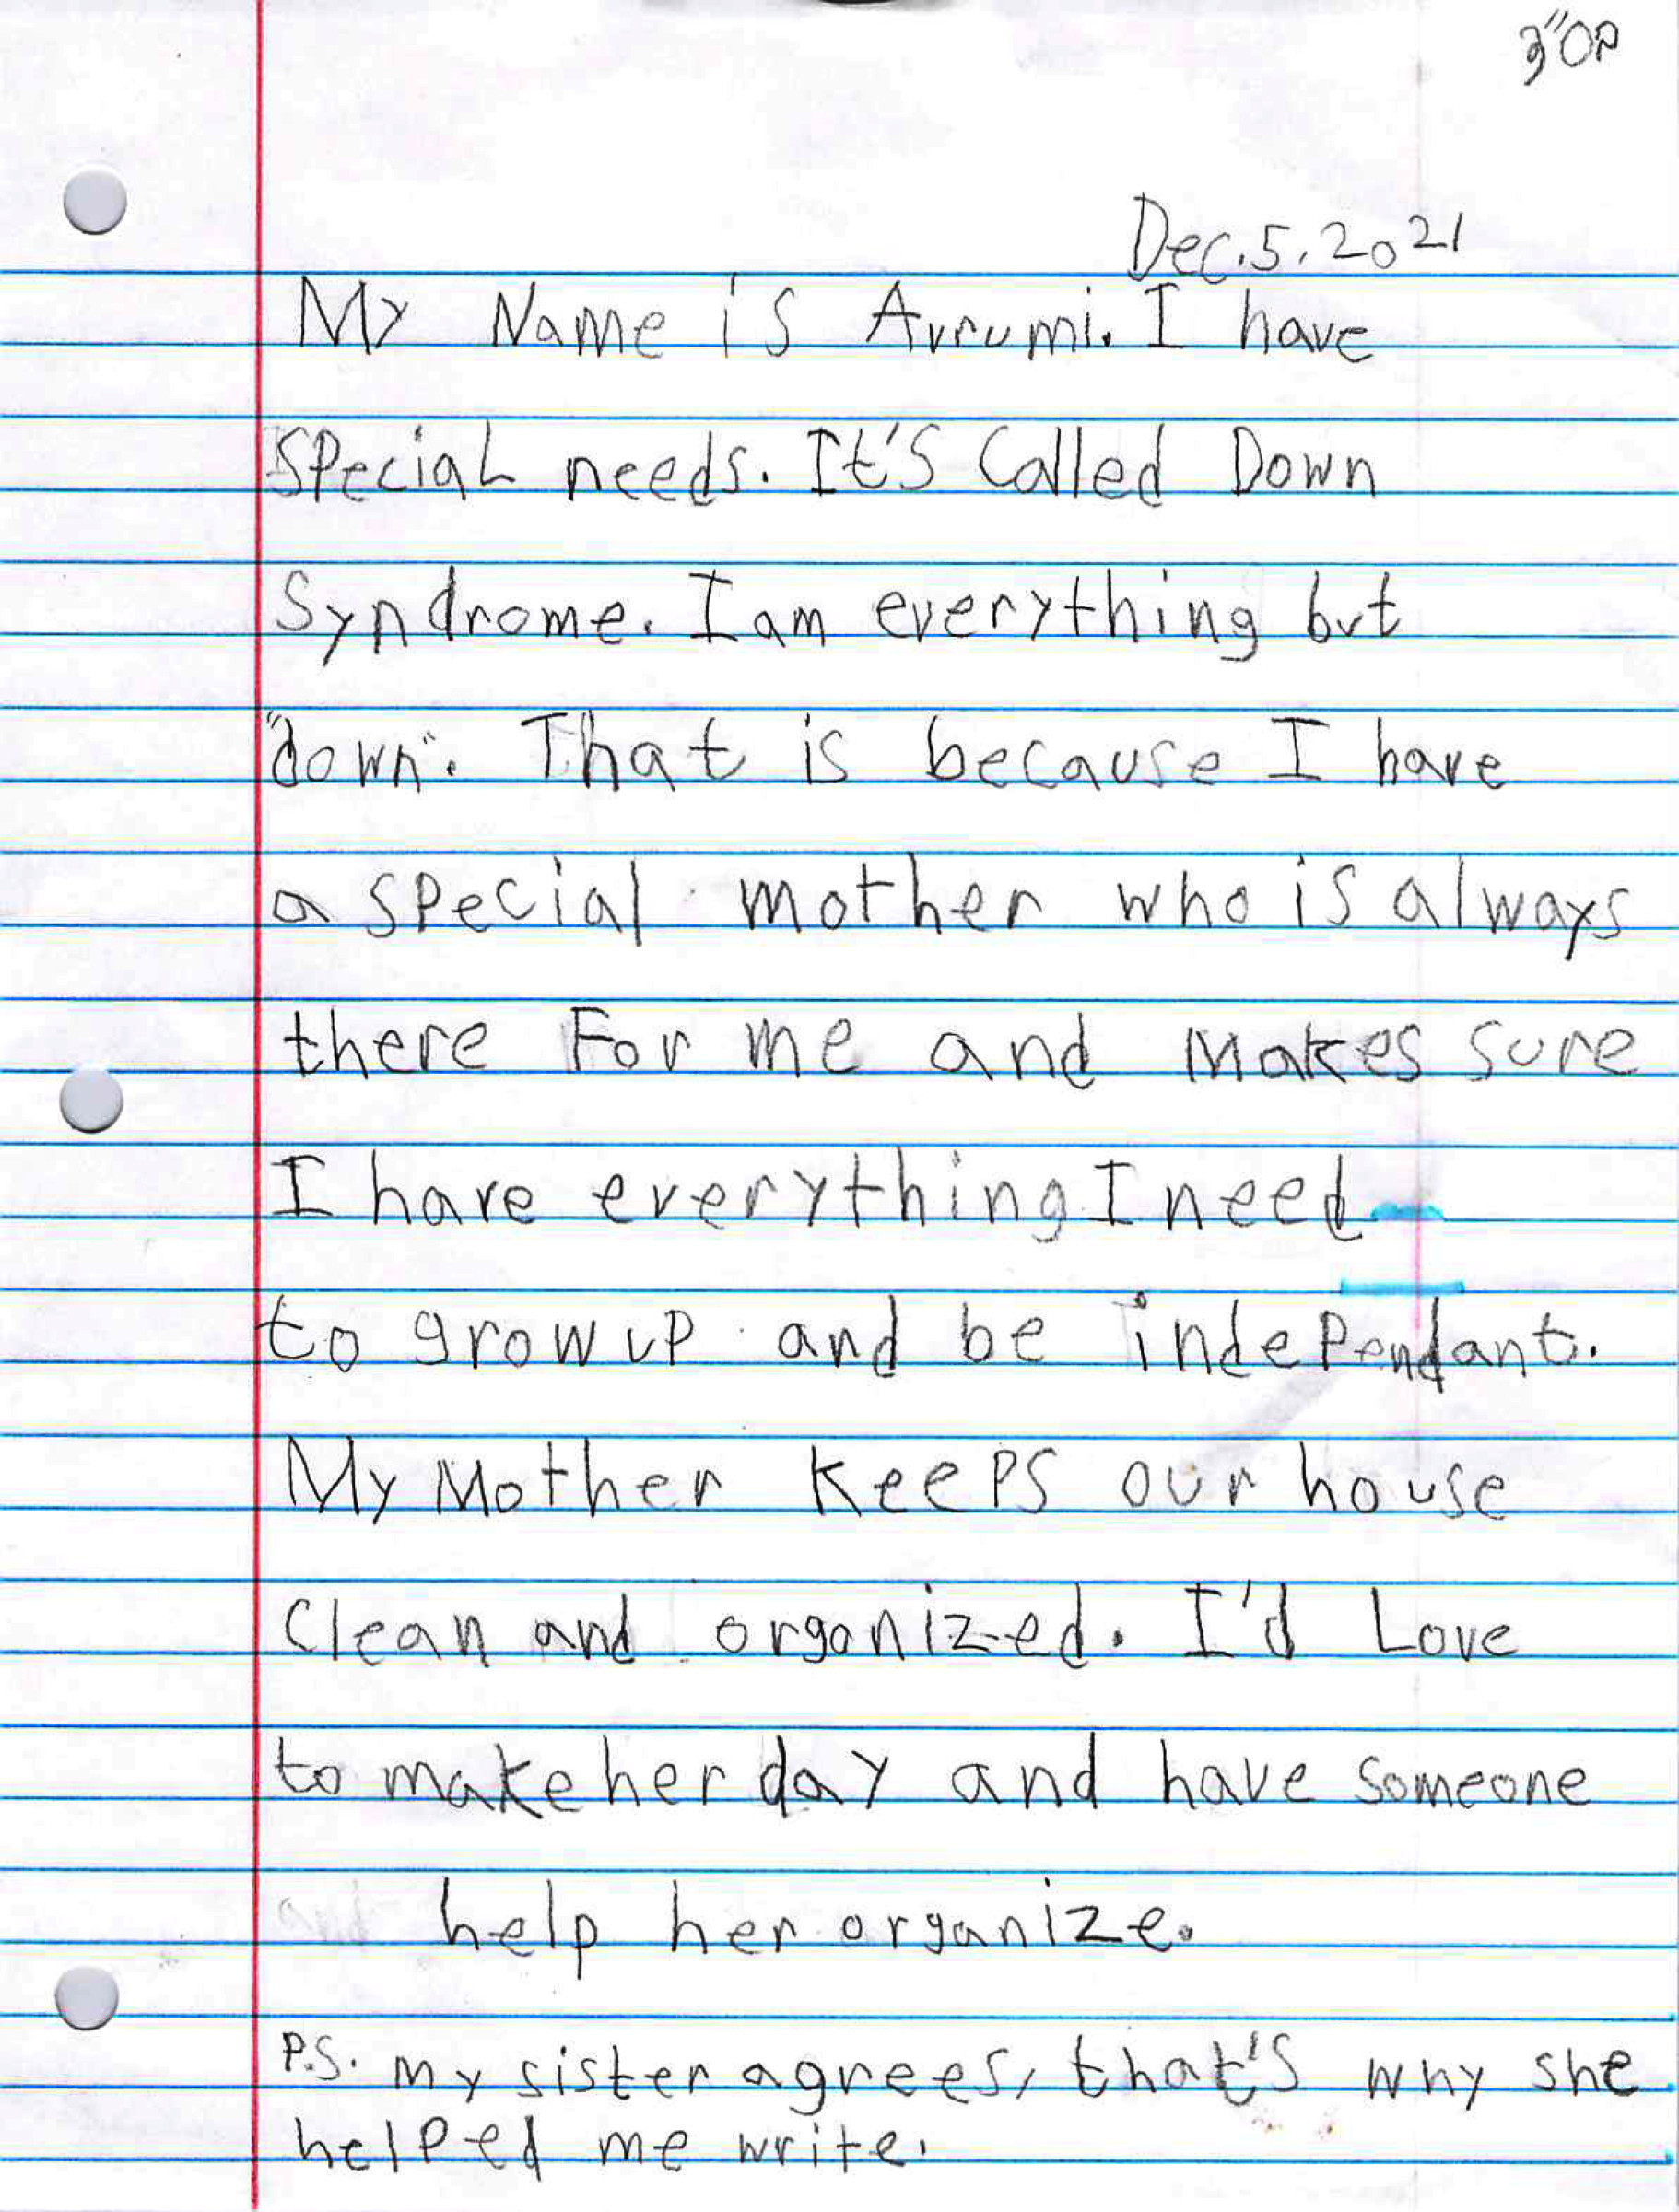 בס"ד
Dec. 5, 2021
My Name is Avrumi. I have
Special needs. It's Called Down
Syndrome. I am everything but
"down". That is because I have
a special mother who is always
there For me and Makes sure
I have everything I need
to grow up and be independant.
My Mother keeps our house
Clean and organized. I'd Love
to make her day and have someone
help her organize.
P.S. my sister agrees, that's why she
helped me write.